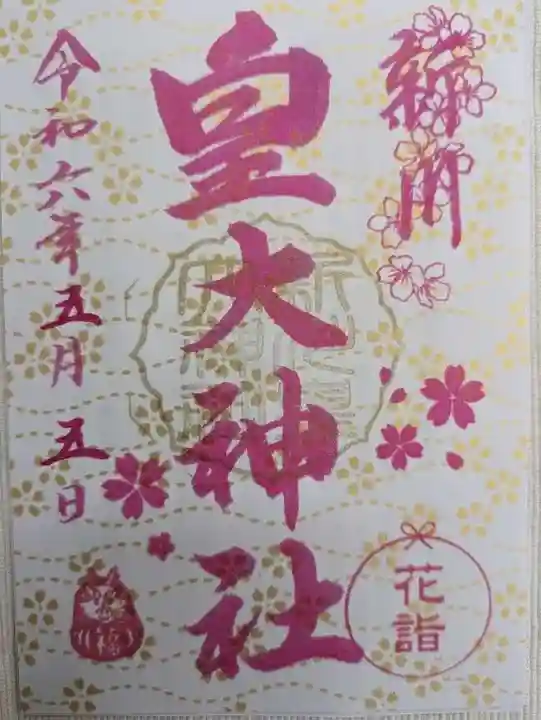 新川
皇大神社
令和六年五月五日
花詣
福